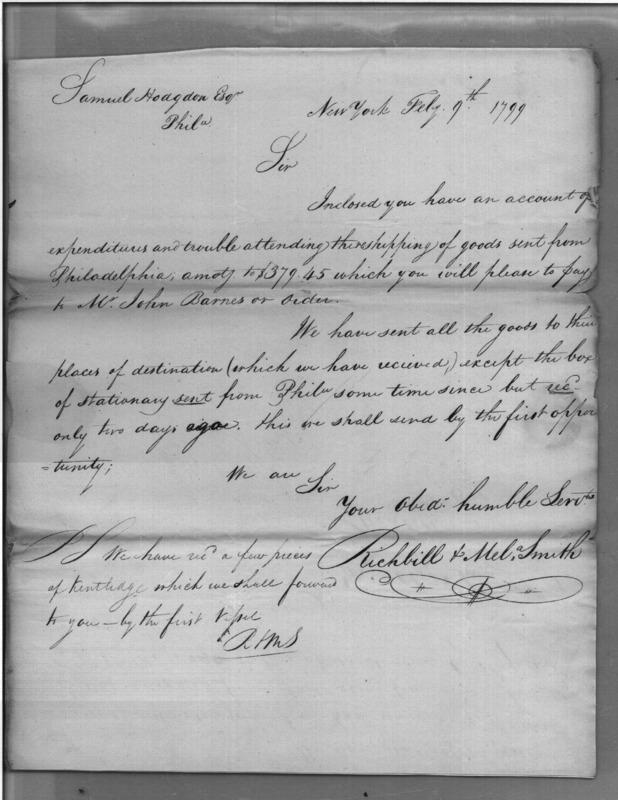 Samuel Hodgdon Esqr
Phila
New York Feby. 9th. 1799
Sir
Inclosed you have an account of
expenditures and trouble attending the reshipping of goods sent from
Philadelphia; amotg to $379.45 which you will please to pay
to Mr. John Barnes or order.
We have sent all the goods to their
places of destination (which we have recieved,) except the box
of stationary sent from Phila some time since but recd.
only two days ago. this we shall send by the first oppor
=tunity;
We are Sir
Your Obedt. humble Servts
Richbill & Mela. Smith
PS We have recd a few pieces
of Kentledge which we shall forward
to you - by the first Vessel
R & MS